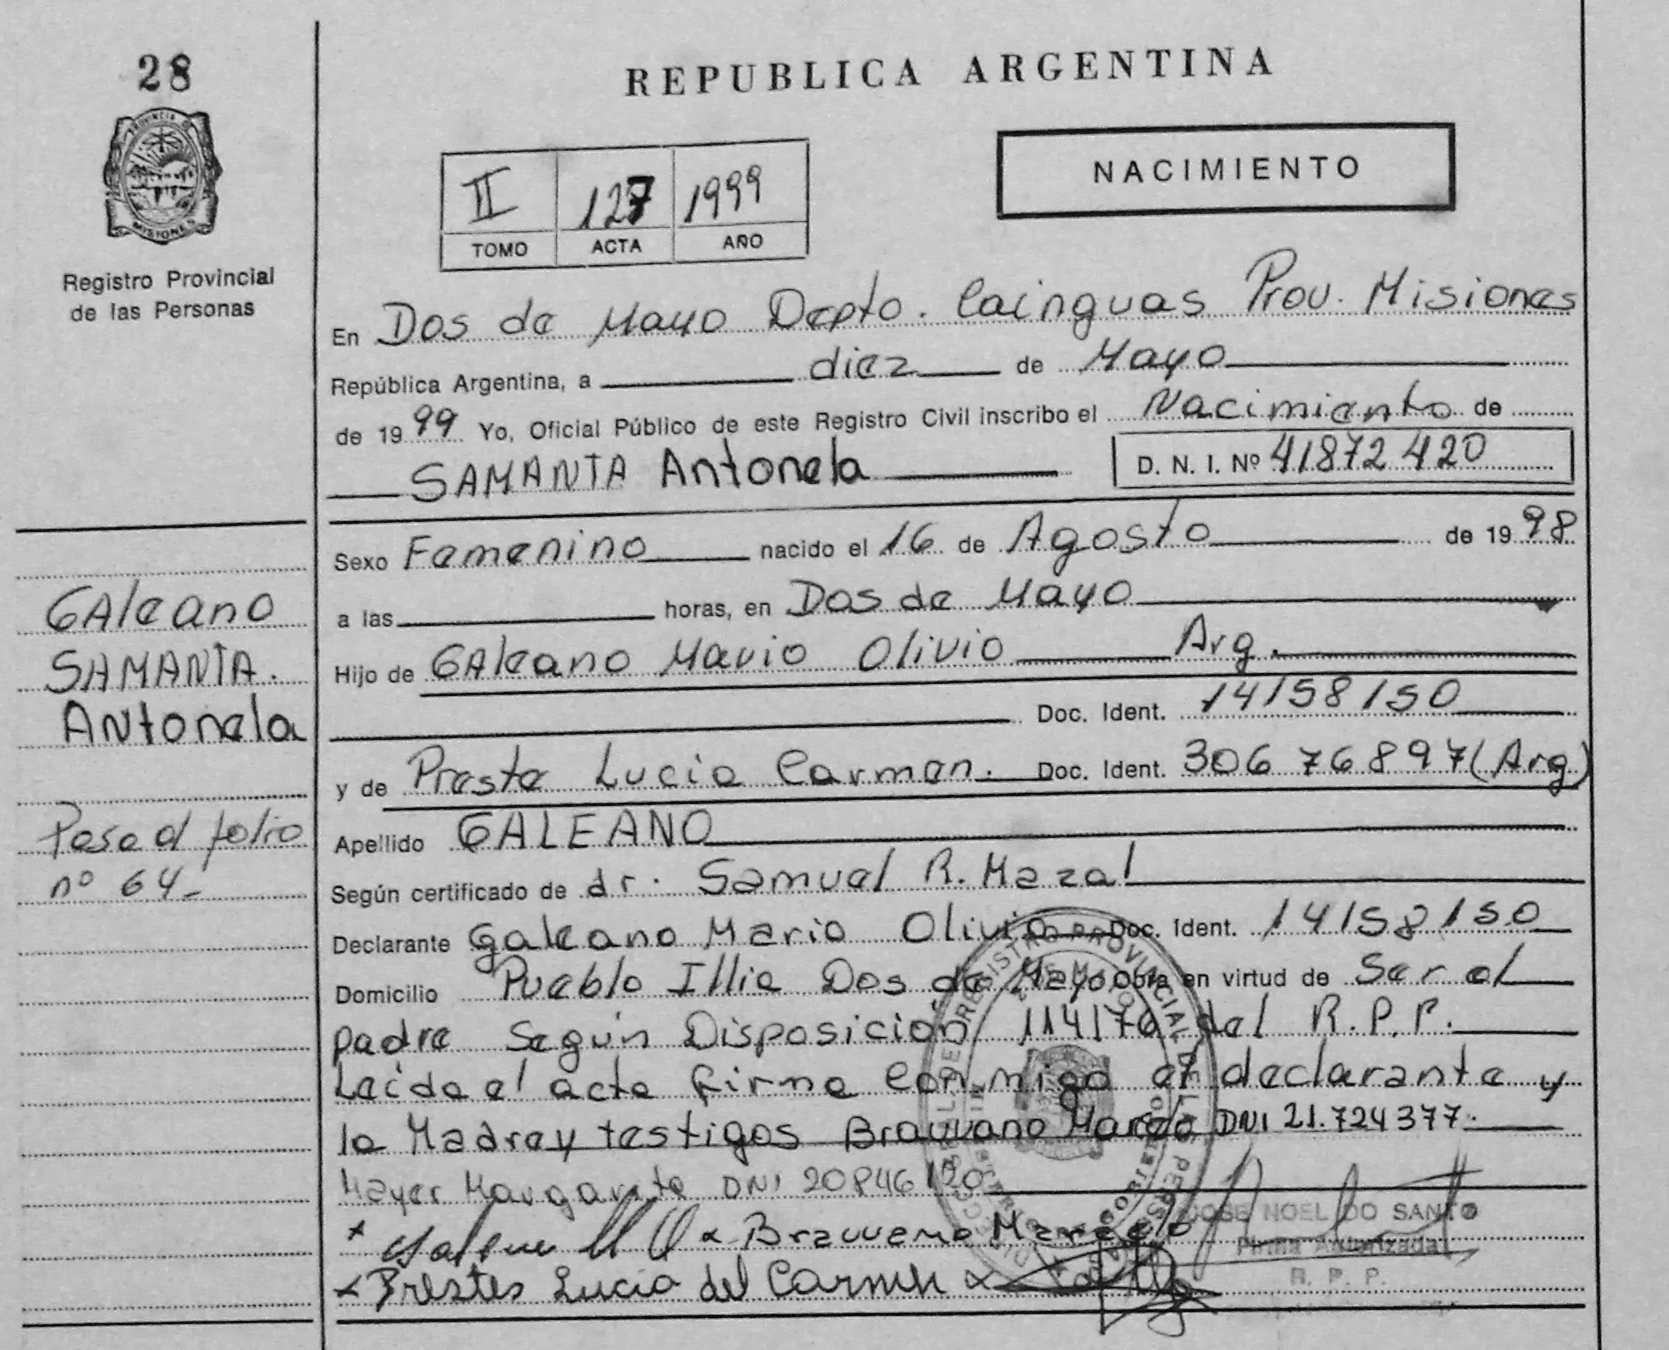 28
REPUBLICA ARGENTINA
PROVINCIA DE
MISIONES
Registro Provincial
de las Personas
NACIMIENTO
II 127 1999
TOMO ACTA AÑO
En Dos de Mayo Depto. Cainguas Prov. Misiones
República Argentina, a diez de Mayo
de 1999 Yo, Oficial Público de este Registro Civil inscribo el Nacimiento de
SAMANTA Antonela D. N. I. Nº 41872 420
Sexo Femenino nacido el 16 de Agosto de 1998
a las horas, en Dos de Mayo
Hijo de GAleano Mario Olivio Arg.
Doc. Ident. 14158150
y de Preste Lucia Carmen. Doc. Ident. 306 76897 (Arg)
Apellido GALEANO
Según certificado de dr. Samuel R. Mazal
Declarante Galeano Mario Olivio Doc. Ident. 14158150
Domicilio Pueblo Illia Dos de Mayo Obra en virtud de Ser el
padre Según Disposición 114/76 del R.P.P.
Leída el acta firma Conmigo el declarante y
la Madre y testigos Brauvano Marcelo DNI 21.724377.
Mayer Margarita DNI 20846120
Brauvano Marcelo
Prestes Lucia del Carmen
JOSE NOEL DO SANTO
Firma Autorizada
R. P. P.
GAleano
SAMANTA.
Antonela
Pasa al folio
nº 64-